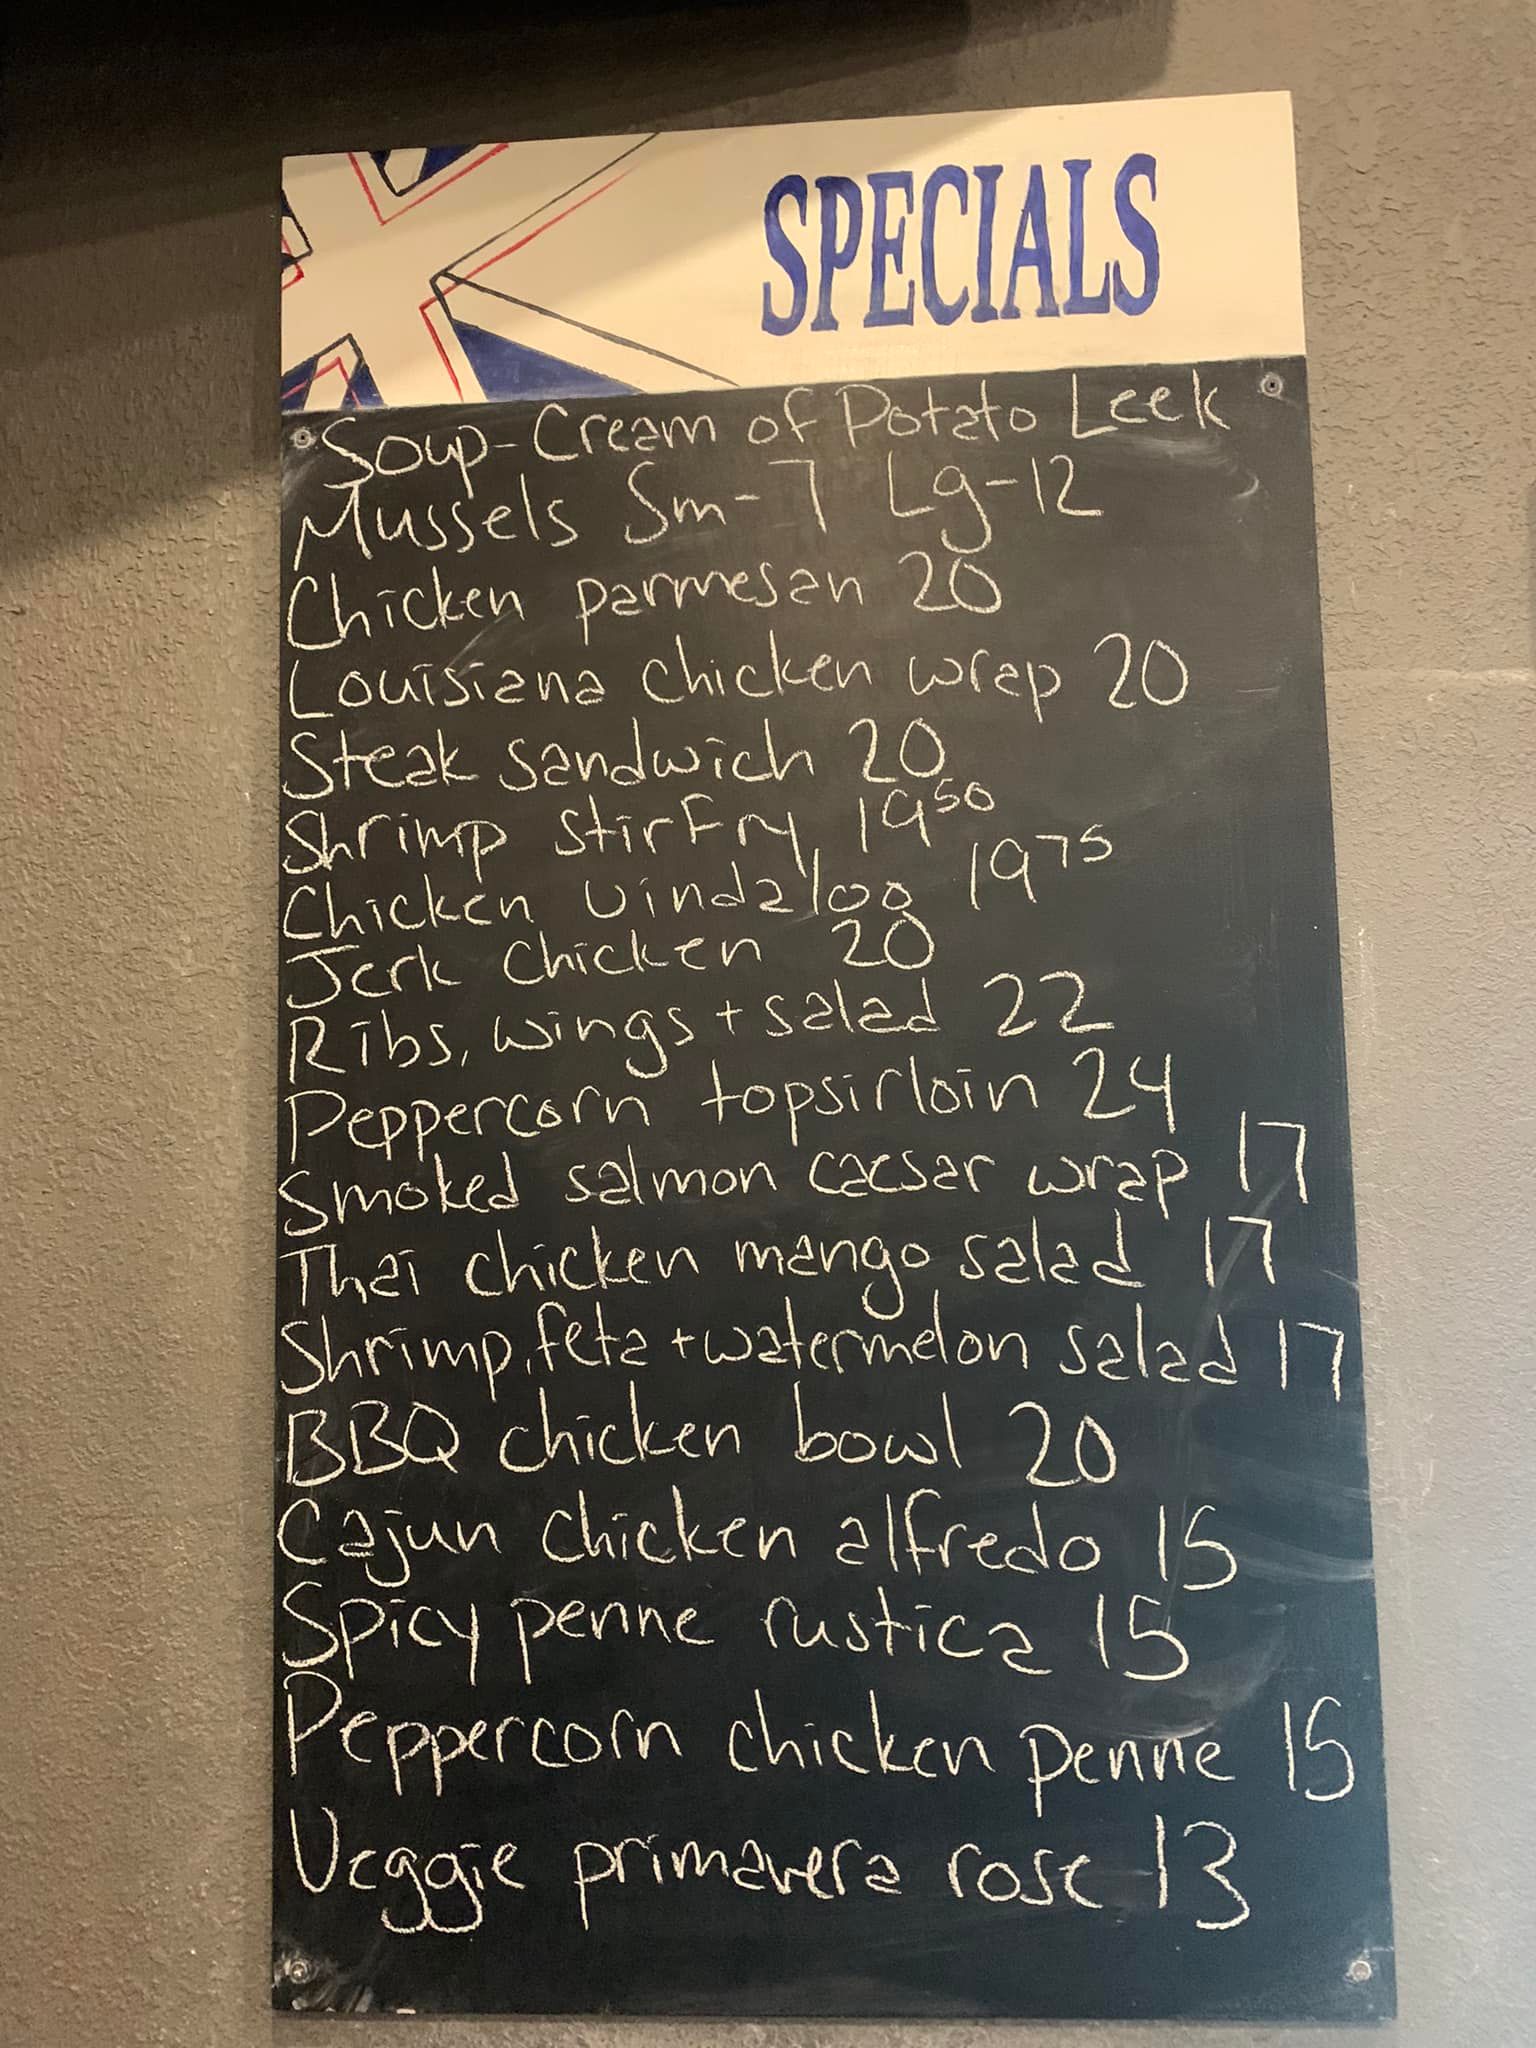 SPECIALS
Soup-Cream of Potato Leek
Mussels Sm-7 Lg-12
Chicken parmesan 20
Louisiana chicken wrap 20
Steak sandwich 20
Shrimp stirfry 19 50
Chicken vindaloo 19 75
Jerk chicken 20
Ribs, wings + salad 22
Peppercorn topsirloin 24
Smoked salmon caesar wrap 17
Thai chicken mango salad 17
Shrimp, feta + watermelon salad 17
BBQ chicken bowl 20
Cajun chicken alfredo 15
Spicy penne rustica 15
Peppercorn chicken penne 15
Veggie primavera rose 13